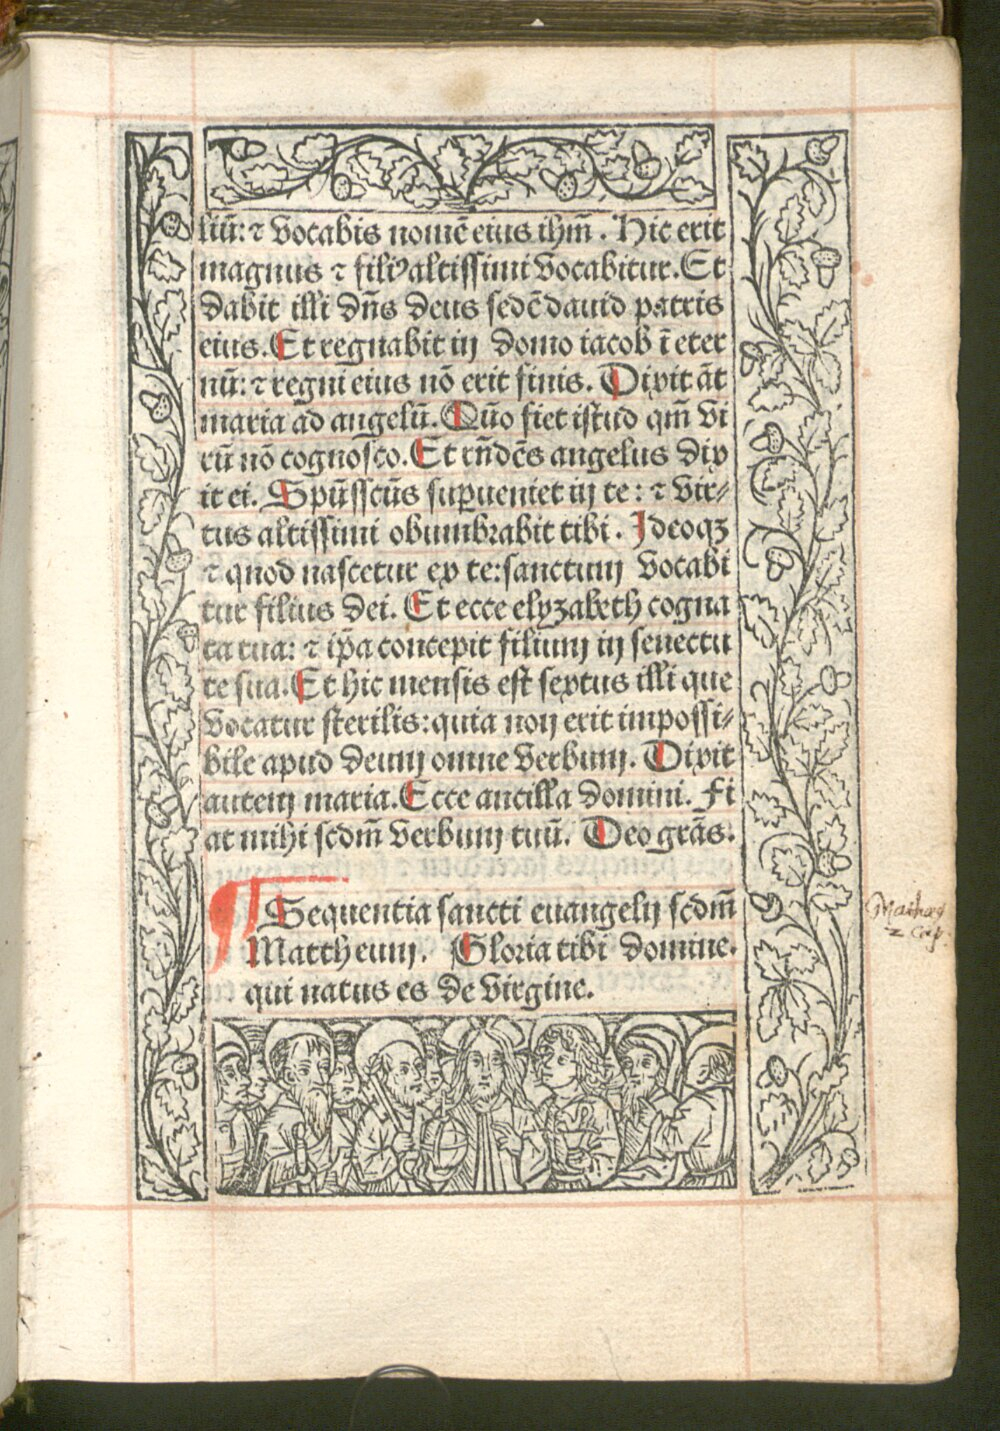 liū: ⁊ vocabis nomē eius ihm̄. Hic erit
magnus ⁊ filiꝰ altissimi vocabitur. Et
dabit illi dn̄s deus sedē dauid patris
eius. Et regnabit in domo iacob ī eter
nū: ⁊ regni eius nō erit finis. Dixit āt
maria ad angelū. Quō fiet istud qm̄ vi
rū nō cognosco. Et rn̄dēs angelus dix
it ei. Spūssctūs suꝑueniet in te: ⁊ vir⸗
tus altissimi obumbrabit tibi. Ideoqꝫ
⁊ quod nascetur ex te: sanctum vocabi
tur filius dei. Et ecce elyzabeth cogna
ta tua: ⁊ ip̄a concepit filium in senectu
te sua. Et hic mensis est sextus illi que
vocatur sterilis: quia non erit impossi⸗
bile apud deum omne verbum. Dixit
autem maria. Ecce ancilla domini. Fi
at mihi scdm̄ verbum tuū. Deo grās.
¶ Sequentia sancti euangelij scdm̄
Mattheum. Gloria tibi domine.
qui natus es de virgine.
2 Cap.